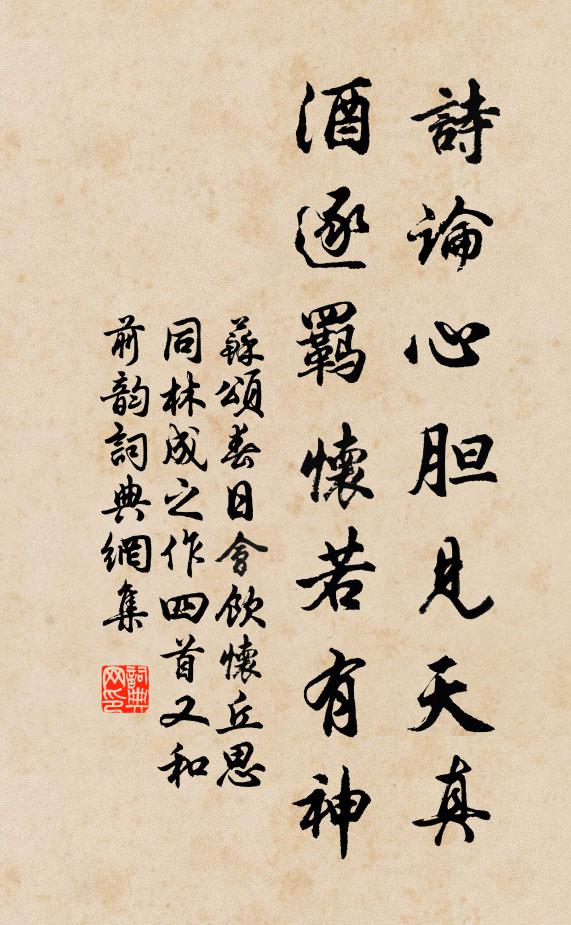 詩論心胆見天真
酒逐羈懷若有神
蘇頌春日會飲懷丘思
同林成之作四首又和
前韵詞典網集
詞典网印